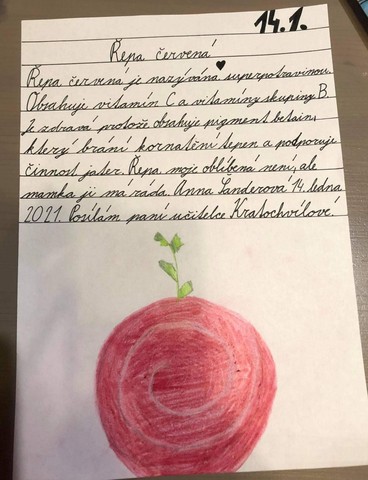 14.1.
Řepa červená
Řepa červená je nazývána superpotravinou.
Obsahuje vitamín C a vitamíny skupiny B.
Je zdravá protože obsahuje pigment betain,
který brání kornatění tepen a podporuje
činnost jater. Řepa moje oblíbená není, ale
mamka ji má ráda. Anna Sanderová 14. ledna
2021. Posílám paní učitelce Kratochvílové.